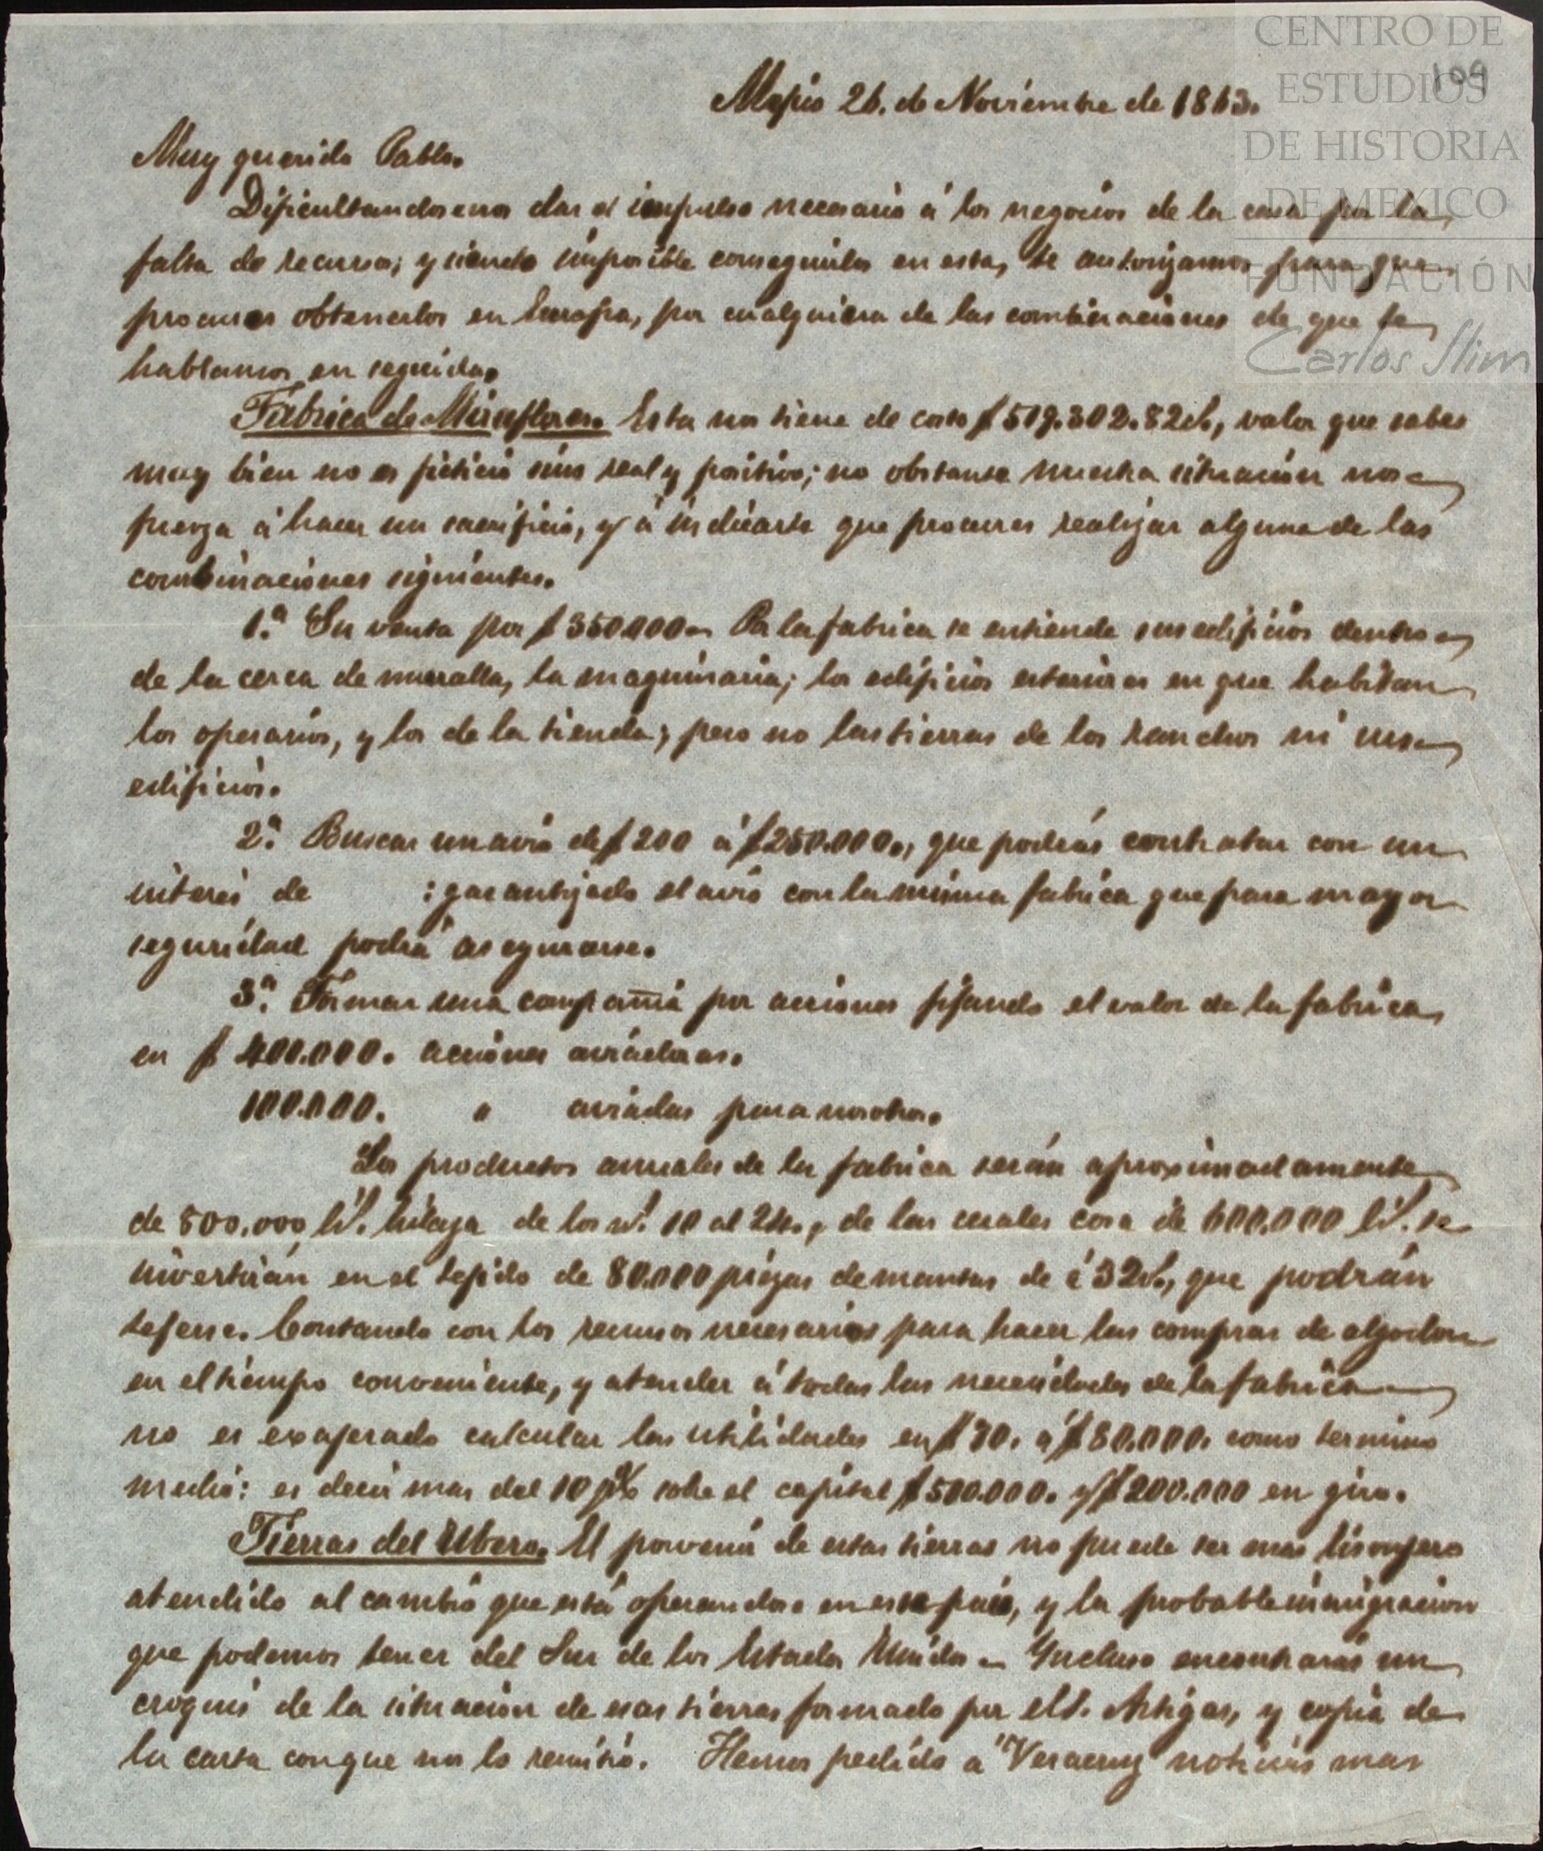 CENTRO DE
ESTUDIOS
DE HISTORIA
DE MEXICO
FUNDACIÓN
Carlos Slim
109
Mejico 26. de Noviembre de 1863.
Muy querido Pablo.
Dificultandosenos dar el impulso necesario á los negocios de la casa por la
falta de recursos; y siendo imposible conseguirlos en esta, te autorizamos para que
procures obtenerlos en Europa, por cualquiera de las combinaciones de que te
hablamos en seguida.
Fabrica de Miraflores. Esta nos tiene de costo $ 519.302.82cs., valor que sabes
muy bien no es ficticio sino real y positivo; no obstante nuestra situación nos
fuerza á hacer un sacrificio, y á indicarte que procures realizar alguna de las
combinaciones siguientes.
1.ª Su venta por $ 350.000 Por la fabrica se entiende sus edificios dentro
de la cerca de muralla, la maquinaria; los edificios esteriores en que habitan
los operarios, y los de la tienda; pero no las tierras de los ranchos ni sus
edificios.
2.ª Buscar un avio de $ 200 á $ 250.000., que podrás contratar con un
interes de : garantizado el avio con la misma fabrica que para mayor
seguridad podrá asegurarse.
3.ª Formar una compañia por acciones fijando el valor de la fabrica
en $ 400.000. acciones aviadoras.
100.000. " aviadas para nosotros.
Los productos anuales de la fabrica serán aproximadamente
de 800.000 lb. hilaza de los n.s 10 al 24., de las cuales cosa de 600.000 lb. se
invertirán en el tejido de 80.000 piezas de mantas de á 32vs., que podrán
tejerse. Contando con los recursos necesarios para hacer las compras de algodon
en el tiempo conveniente, y atender á todas las necesidades de la fabrica
no es exajerado calcular las utilidades en $ 70. á $ 80.000. como termino
medio: es decir mas del 10 p% sobre el capital $ 500.000. y $ 200.000 en giro.
Tierras del Ubero. El porvenir de estas tierras no puede ser mas lisonjero
atendido al cambio que está operandose en este pais, y la probable inmigracion
que podemos tener del Sur de los Estados Unidos. Incluso encontrarás un
croquis de la situación de esas tierras formado por el S. Artigas, y copia de
la carta con que nos lo remitió. Hemos pedido a Veracruz noticias mas